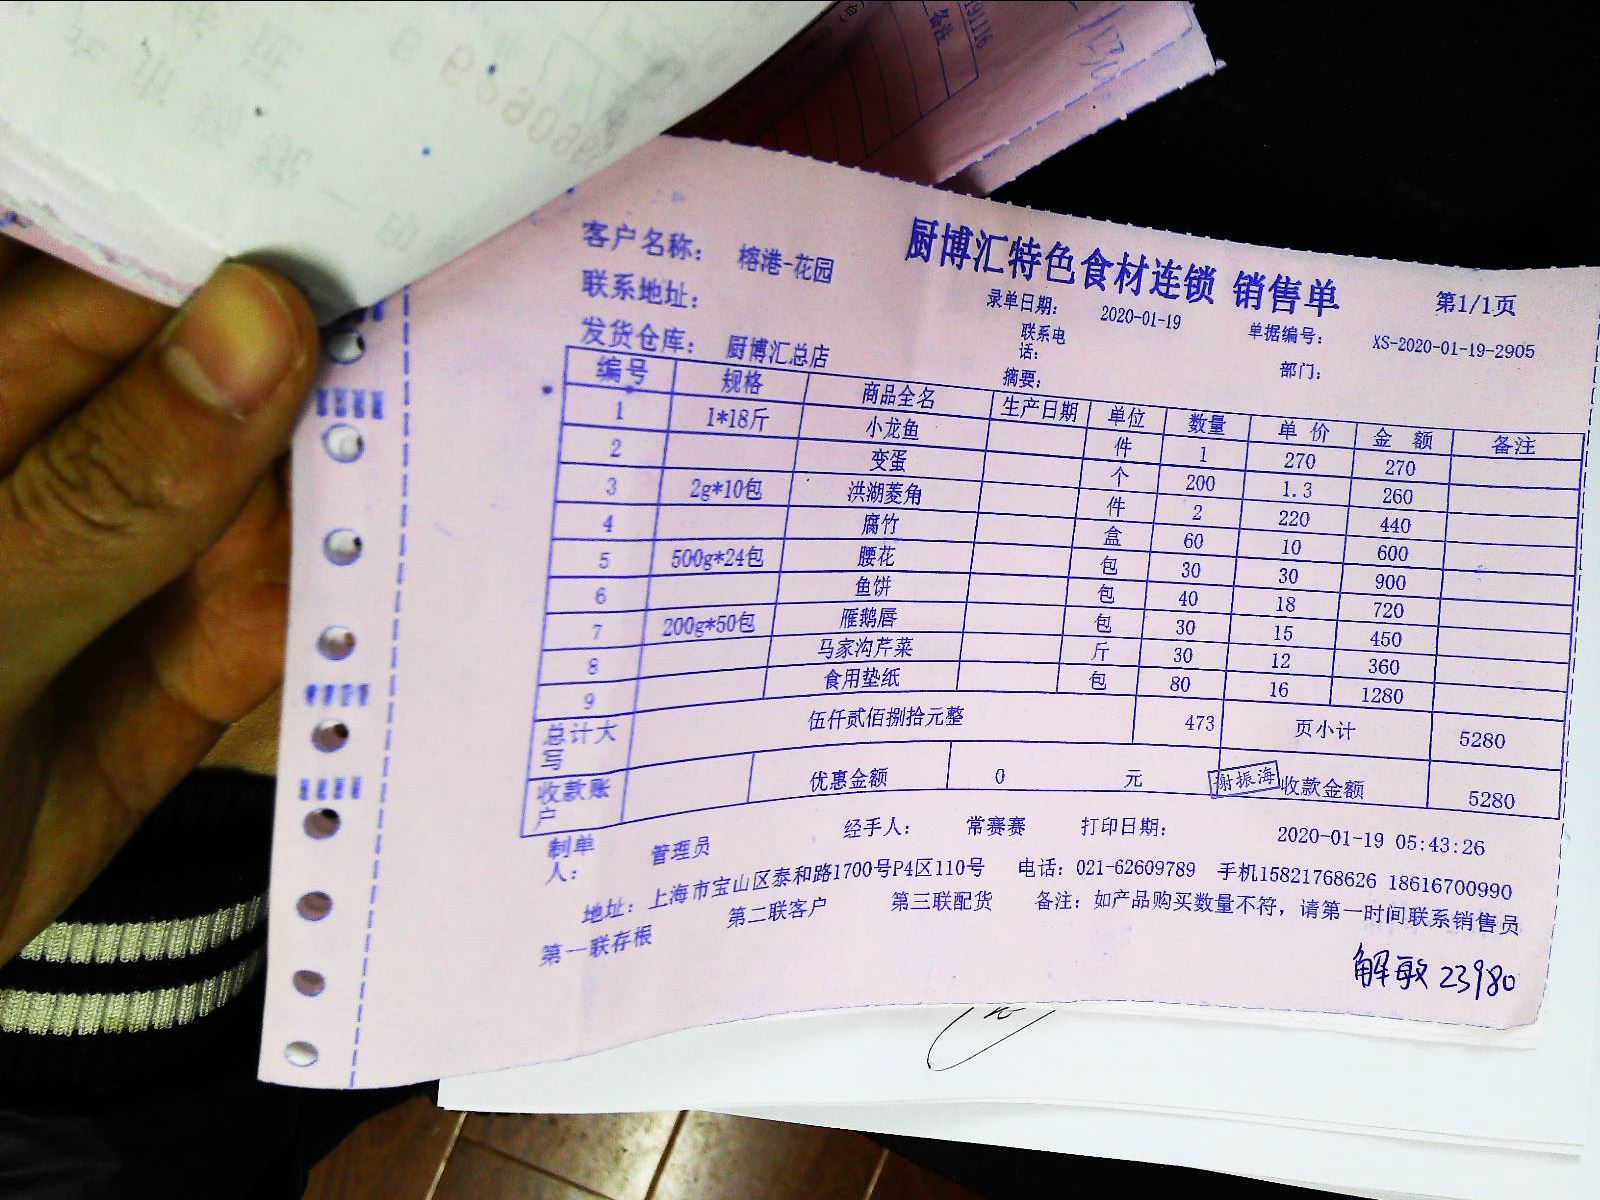 厨博汇特色食材连锁 销售单 第1/1页
客户名称： 榕港-花园 录单日期： 2020-01-19 单据编号： XS-2020-01-19-2905
联系地址： 联系电话： 部门：
发货仓库： 厨博汇总店 摘要：
编号 规格 商品全名 生产日期 单位 数量 单价 金额 备注
1 1*18斤 小龙鱼 件 1 270 270
2 变蛋 个 200 1.3 260
3 2g*10包 洪湖菱角 件 2 220 440
4 腐竹 盒 60 10 600
5 500g*24包 腰花 包 30 30 900
6 鱼饼 包 40 18 720
7 200g*50包 雁鹅唇 包 30 15 450
8 马家沟芹菜 斤 30 12 360
9 食用垫纸 包 80 16 1280
总计大写 伍仟贰佰捌拾元整 473 页小计 5280
收款账户 优惠金额 0 元 谢振海 收款金额 5280
制单人： 管理员 经手人： 常赛赛 打印日期： 2020-01-19 05:43:26
地址：上海市宝山区泰和路1700号P4区110号 电话：021-62609789 手机15821768626 18616700990
第一联存根 第二联客户 第三联配货 备注：如产品购买数量不符，请第一时间联系销售员
解敏 23980
备注
191116